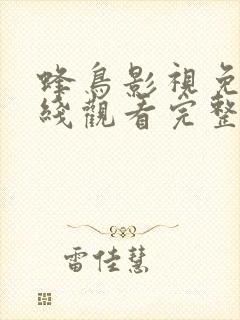 蜂鳥影視免
綫觀看完整
雷佳慧